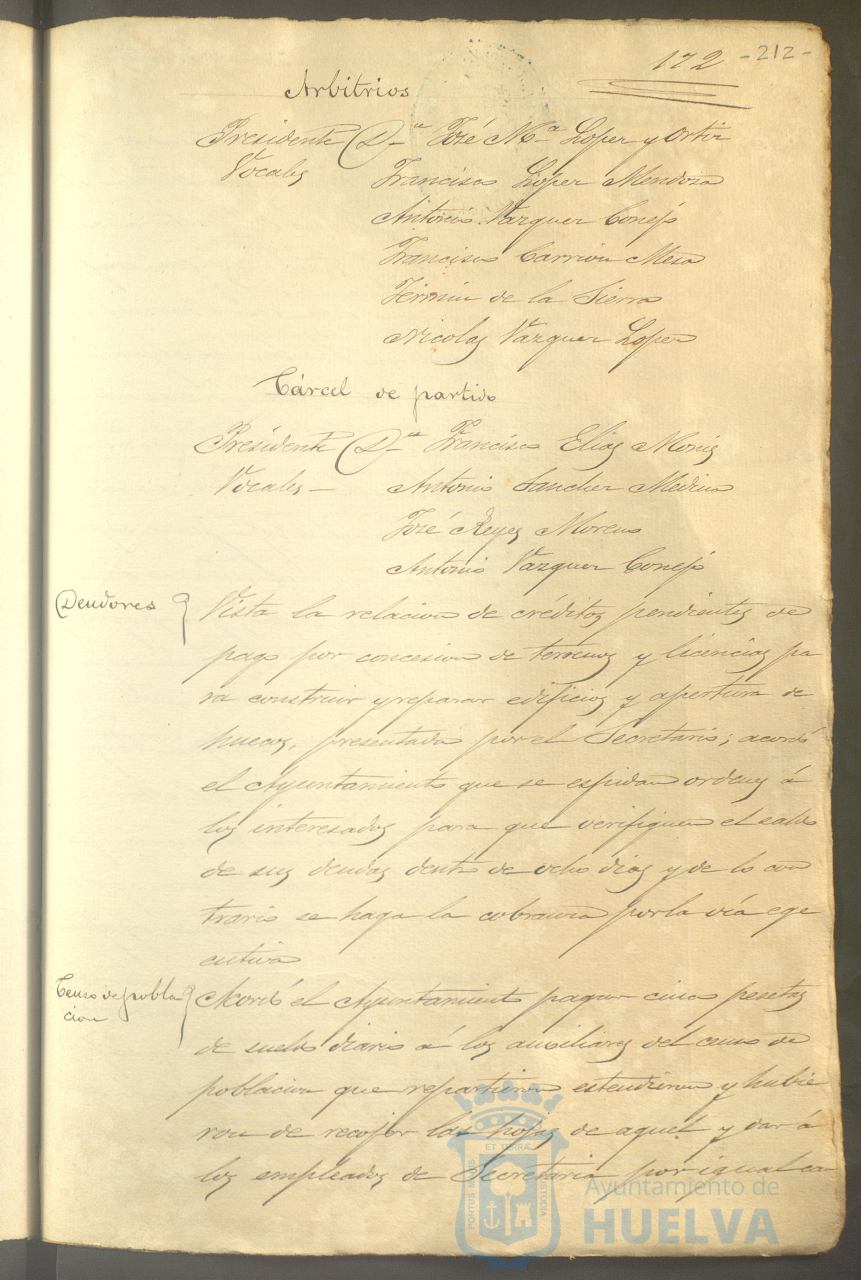 172 -212-
Arbitrios
Presidente D.n José M.a Lopez y Ortiz
Vocales Francisco Lopez Mendoza
Antonio Vazquez Conejo
Francisco Carrion Mesa
Fermin de la Sierra
Nicolas Vazquez Lopez
Cárcel de partido
Presidente D.n Francisco Elias Moniz
Vocales — Antonio Sanchez Medina
José Reyes Moreno
Antonio Vazquez Conejo
Deudores Vista la relacion de créditos pendientes de
pago por concesion de terrenos y licencias pa
ra construir y reparar edificios y apertura de
huecos, presentada por el Secretario; acordó
el Ayuntamiento que se espidan ordenes á
los interesados para que verifiquen el saldo
de sus deudas dentro de ocho dias y de lo con
trario se haga la cobranza por la vía ege
cutiva
Censo de pobla Acordó el Ayuntamiento pagar cinco pesetas
cion de sueldo diario á los auxiliares del censo de
poblacion que repartieron estendieron y hubie
ron de recojer las hojas de aquel y dar á
los empleados de Secretaria por igual ca
PORTUS MARIS ET TERRAE CUSTODIA
Ayuntamiento de
HUELVA